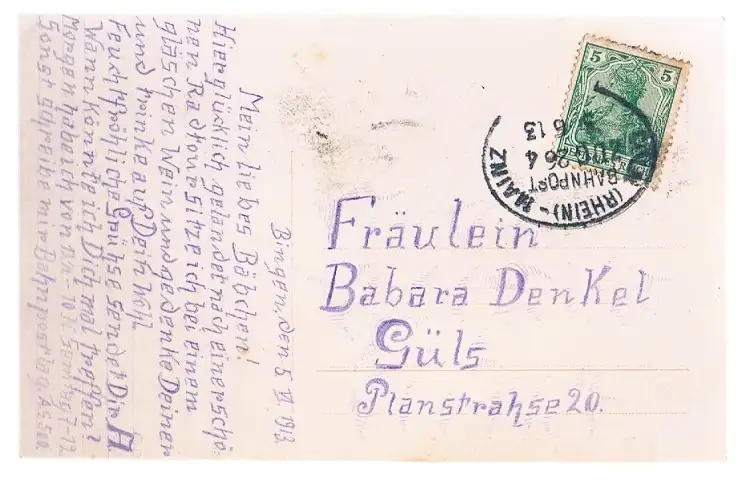 Bingen, den 5 VI 1913
Mein liebes Bäbchen!
Hier glücklich gelandet nach einer schö-
nen Radtour sitze ich bei einem
gläschen Wein und gedenke Deiner
und trinke auf Dein Wohl
Feuchtfröhliche Grühse sendet Dir A
Wann könnte ich Dich mal treffen?
Morgen habe ich von
Sonst schreibe mir Bahnpostlag
5
BAHNPOST
(RHEIN) - MAINZ
6 13
Fräulein
Babara Denkel
Güls
Planstrahse 20.